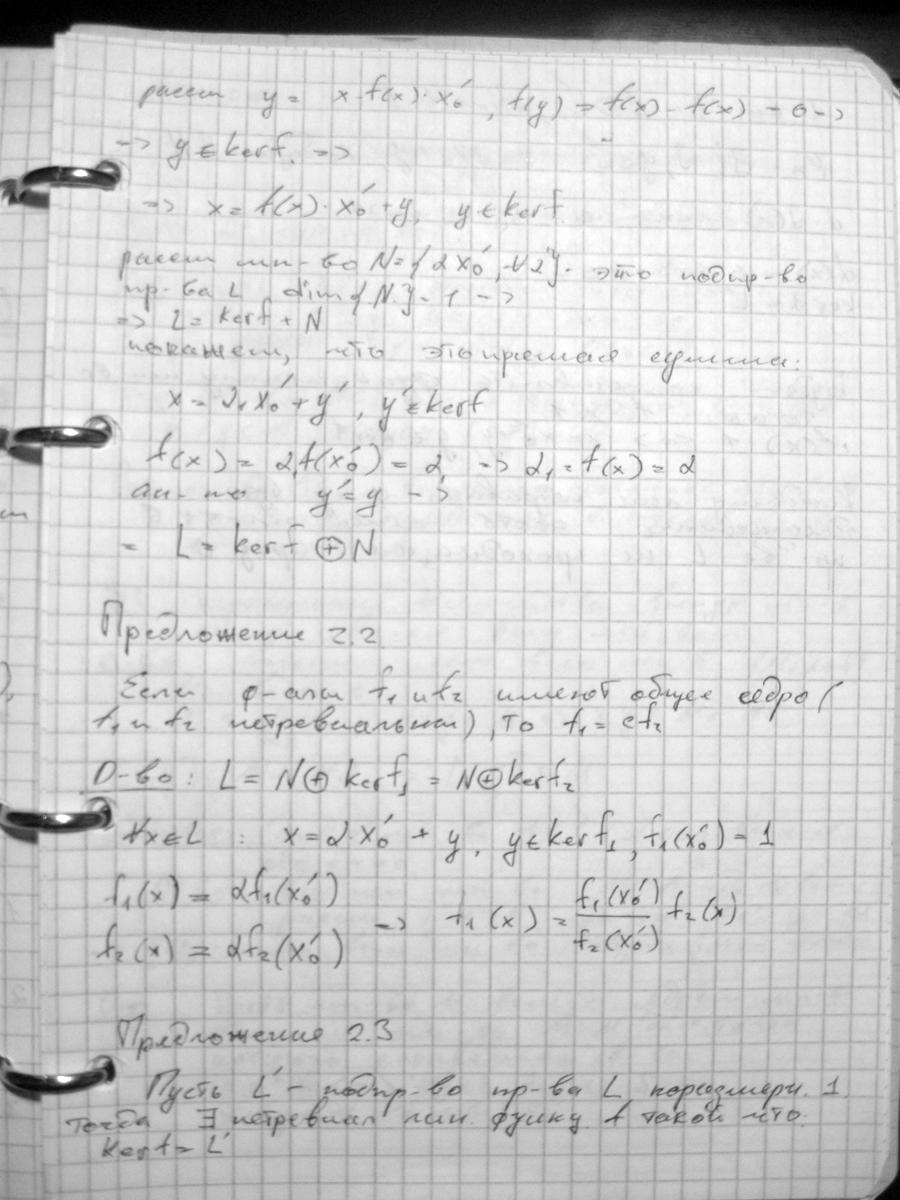 рассм y = x - f(x)·x₀', f(y) = f(x) - f(x) = 0 =>
=> y ∈ ker f. =>
=> x = f(x)·x₀' + y, y ∈ ker f
рассм мн-во N = {αx₀', ∀α} - это подпр-во
пр-ва L dim{N} = 1 =>
=> L = ker f + N
покажем, что это прямая сумма:
x = α₁x₀' + y', y' ∈ ker f
f(x) = α₁f(x₀') = α₁ => α₁ = f(x) = α
ан-но y' = y =>
= L = ker f ⊕ N
Предложение 2.2
Если ф-алы f₁ и f₂ имеют общее ядро (
f₁ и f₂ нетревиальны), то f₁ = cf₂
D-во: L = N ⊕ ker f₁ = N ⊕ ker f₂
∀x ∈ L : x = α·x₀' + y, y ∈ ker f₁, f₁(x₀') = 1
f₁(x) = αf₁(x₀')
f₂(x) = αf₂(x₀') => f₁(x) = f₁(x₀')/f₂(x₀') f₂(x)
Предложение 2.3
Пусть L' - подпр-во пр-ва L коразмерн. 1
тогда ∃ нетревиал лин. функц. f такой что.
ker f = L'